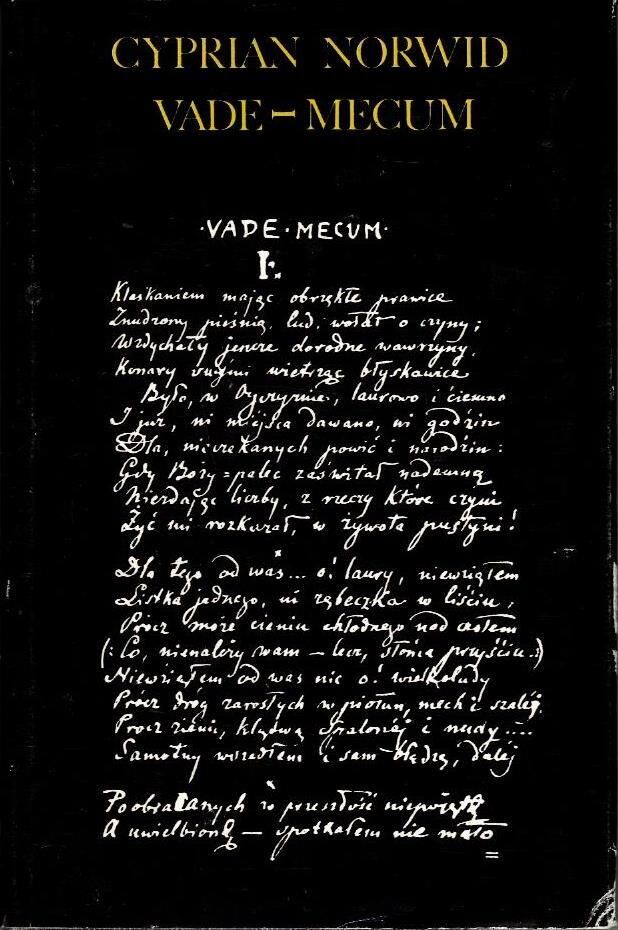 CYPRIAN NORWID
VADE-MECUM
·VADE·MECUM·
I.
Klaskaniem mając obrzękłe prawice
Znudzony pieśnią, lud, wołał o czyny;
Wzdychały jeszcze dorodne wawrzyny,
Konary swymi wietrząc błyskawice
Było, w Ojczyźnie, laurowo i ciemno
I już, ni miejsca dawano, ni godzin
Dla, nieczekanych powić i narodzin:
Gdy Boży=palec zaświtał nademną
Niezdając liczby, z rzeczy które czyni
Żyć mi rozkazał, w żywota pustyni!
Dla tego od was... o! laury, niewziąłem
Listka jednego, ni ząbeczka w liściu,
Prócz może cieniu chłodnego nad czołem
(: Co, nienależy wam – lecz, słońca przyjściu..:)
Niewziąłem od was nic o! wielkoludy
Prócz dróg zarosłych w piołun, mech i szalej,
Prócz ziemi, klątwą spalonéj i nudy....
Samotny wszedłem i sam błądzę, daléj
Poobracanych w przeszłość niepojętą
A uwielbioną – spotkałem nie mało
=